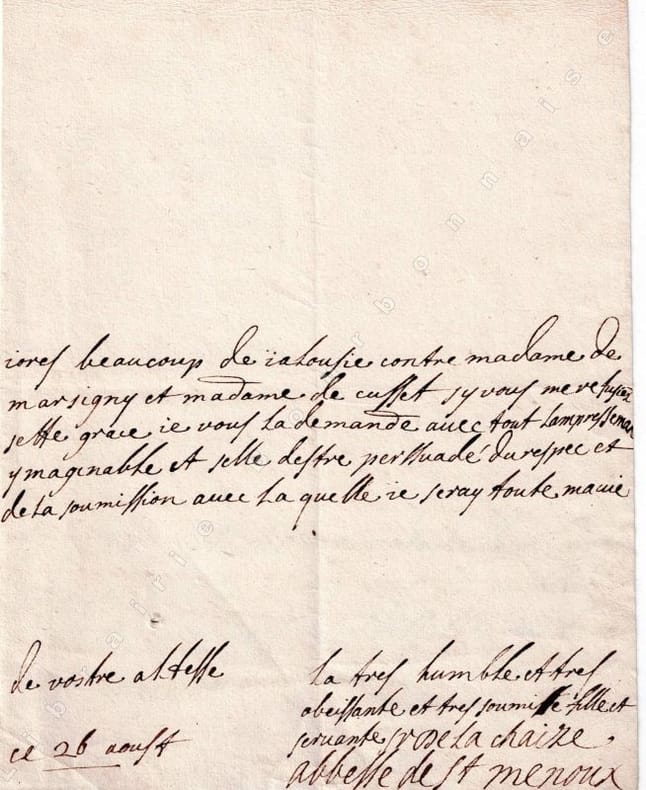 iores beaucoup de ialousie contre madame de
marsigny et madame de cusset sy vous me refusiez
sette grace ie vous la demande avec tout lampressemant
ymaginable et selle destre perssuadé du respec et
de la soumission avec la quelle ie seray toute ma vie
de vostre altesse
la tres humble et tres
obeissante et tres soumisse fille et
servante sr de la chaize
abbesse de st menoux
ce 26 aoust
Librairie Bourbonnaise